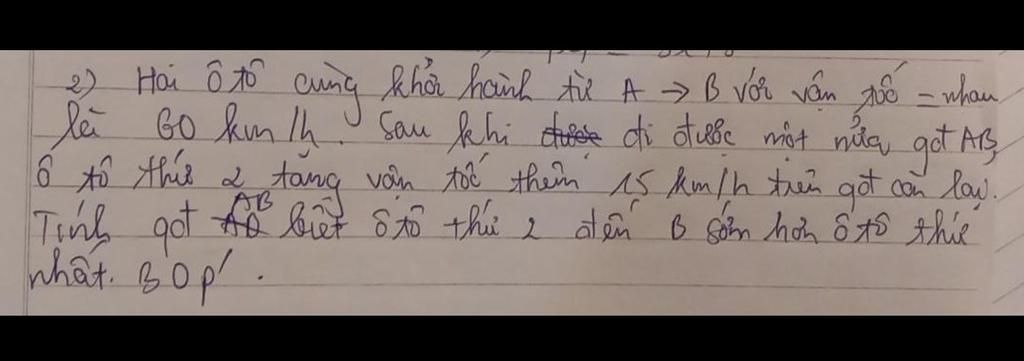 2) Hai ô tô cùng khởi hành từ A → B với vận tốc = nhau
là 60 km/h. Sau khi đi được một nửa qđt AB,
ô tô thứ 2 tăng vận tốc thêm 15 km/h trên qđt còn lại.
Tính qđt AB biết ô tô thứ 2 đến B sớm hơn ô tô thứ
nhất. 30p'.